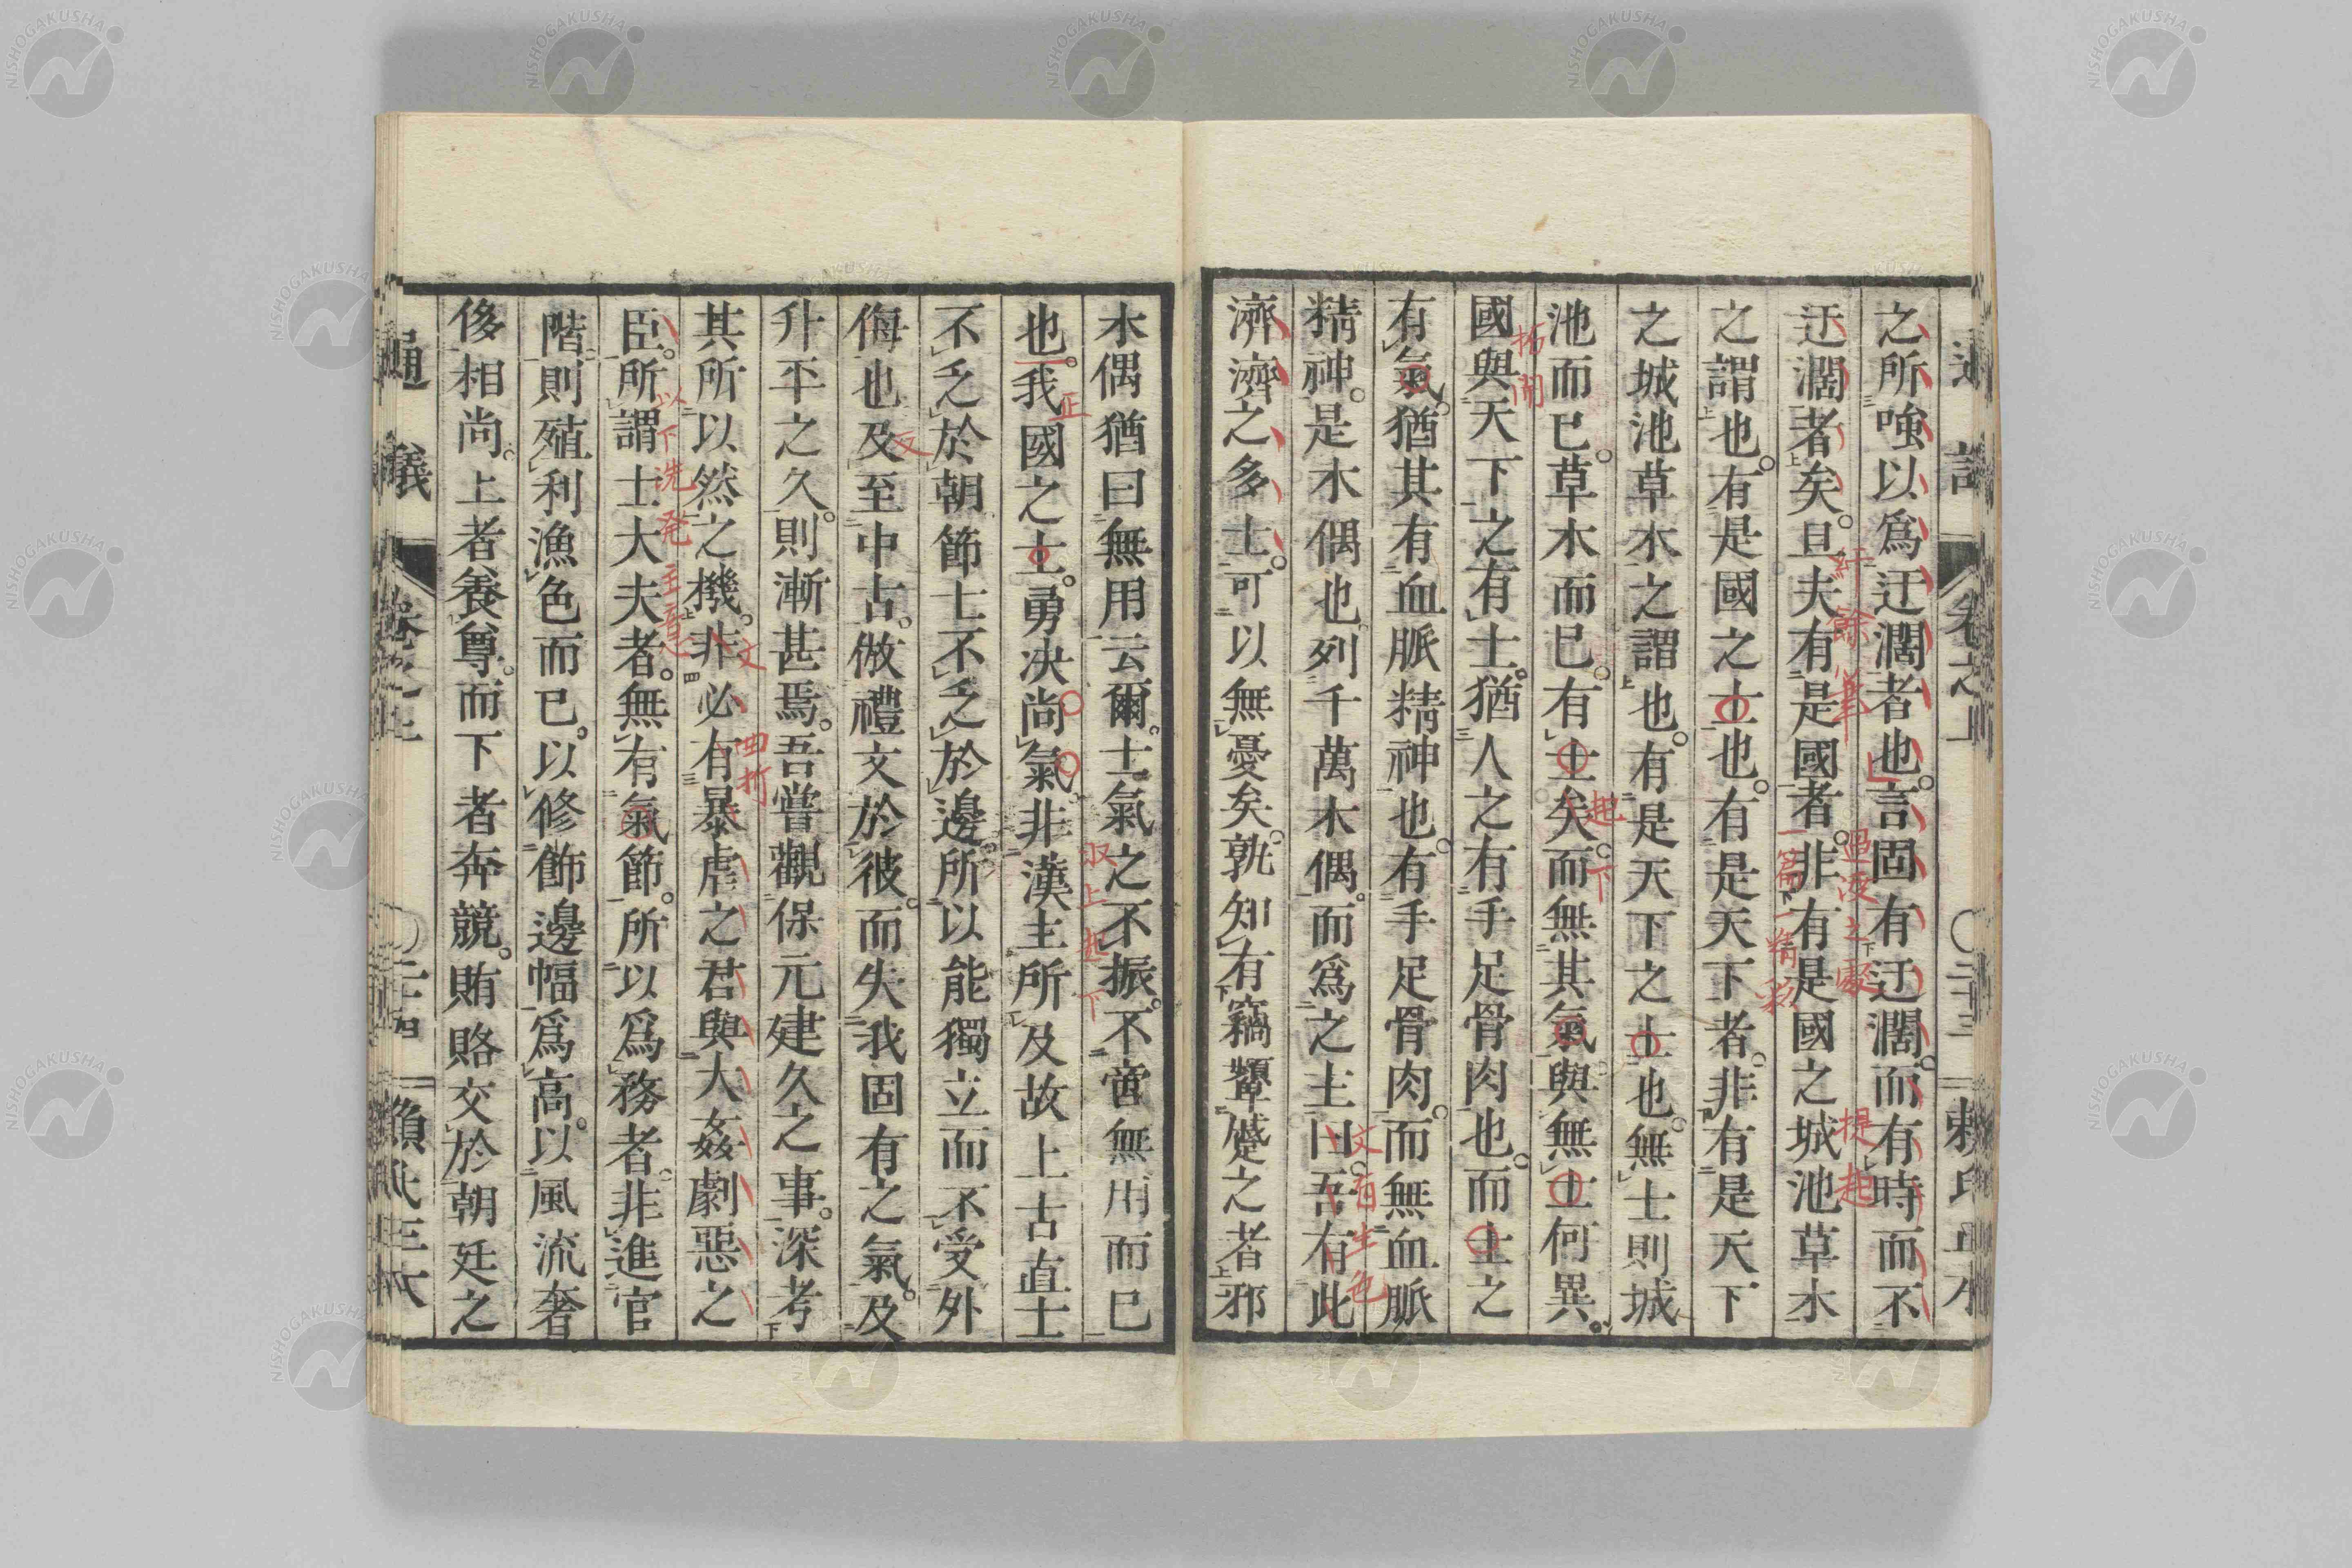 之所嗤以爲迂濶者也言固有迂濶而有時而不
迂濶者矣且夫有是國者非有是國之城池草木
之謂也有是國之士也有是天下者非有是天下
之城池草木之謂也有是天下之士也無士則城
池而已草木而已有士矣而無其氣與無士何異
國與天下之有士猶人之有手足骨肉也而士之
有氣猶其有血脈精神也有手足骨肉而無血脈
精神是木偶也列千萬木偶而爲之主曰吾有此
濟濟之多士可以無憂矣孰知有竊顰蹙之者邪
木偶猶曰無用云爾士氣之不振不啻無用而已
也我國之士勇决尚氣非漢土所及故上古直士
不乏於朝節士不乏於邊所以能獨立而不受外
侮也及至中古倣禮文於彼而失我固有之氣及
升平之久則漸甚焉吾嘗觀保元建久之事深考
其所以然之機非必有暴虐之君與大姦劇惡之
臣所謂士大夫者無有氣節所以爲務者非進官
階則殖利漁色而已以修飾邊幅爲高以風流奢
侈相尚上者養尊而下者奔競賄賂交於朝廷之
通議 卷之上 二十三
通議 卷之上 二十四 賴氏正本
紆餘筆
過渡之處
提起
一篇精彩
起下
拓開
文有生色
正
収上起下
反
文
曲折
以下洗発主意
NISHOGAKUSHA